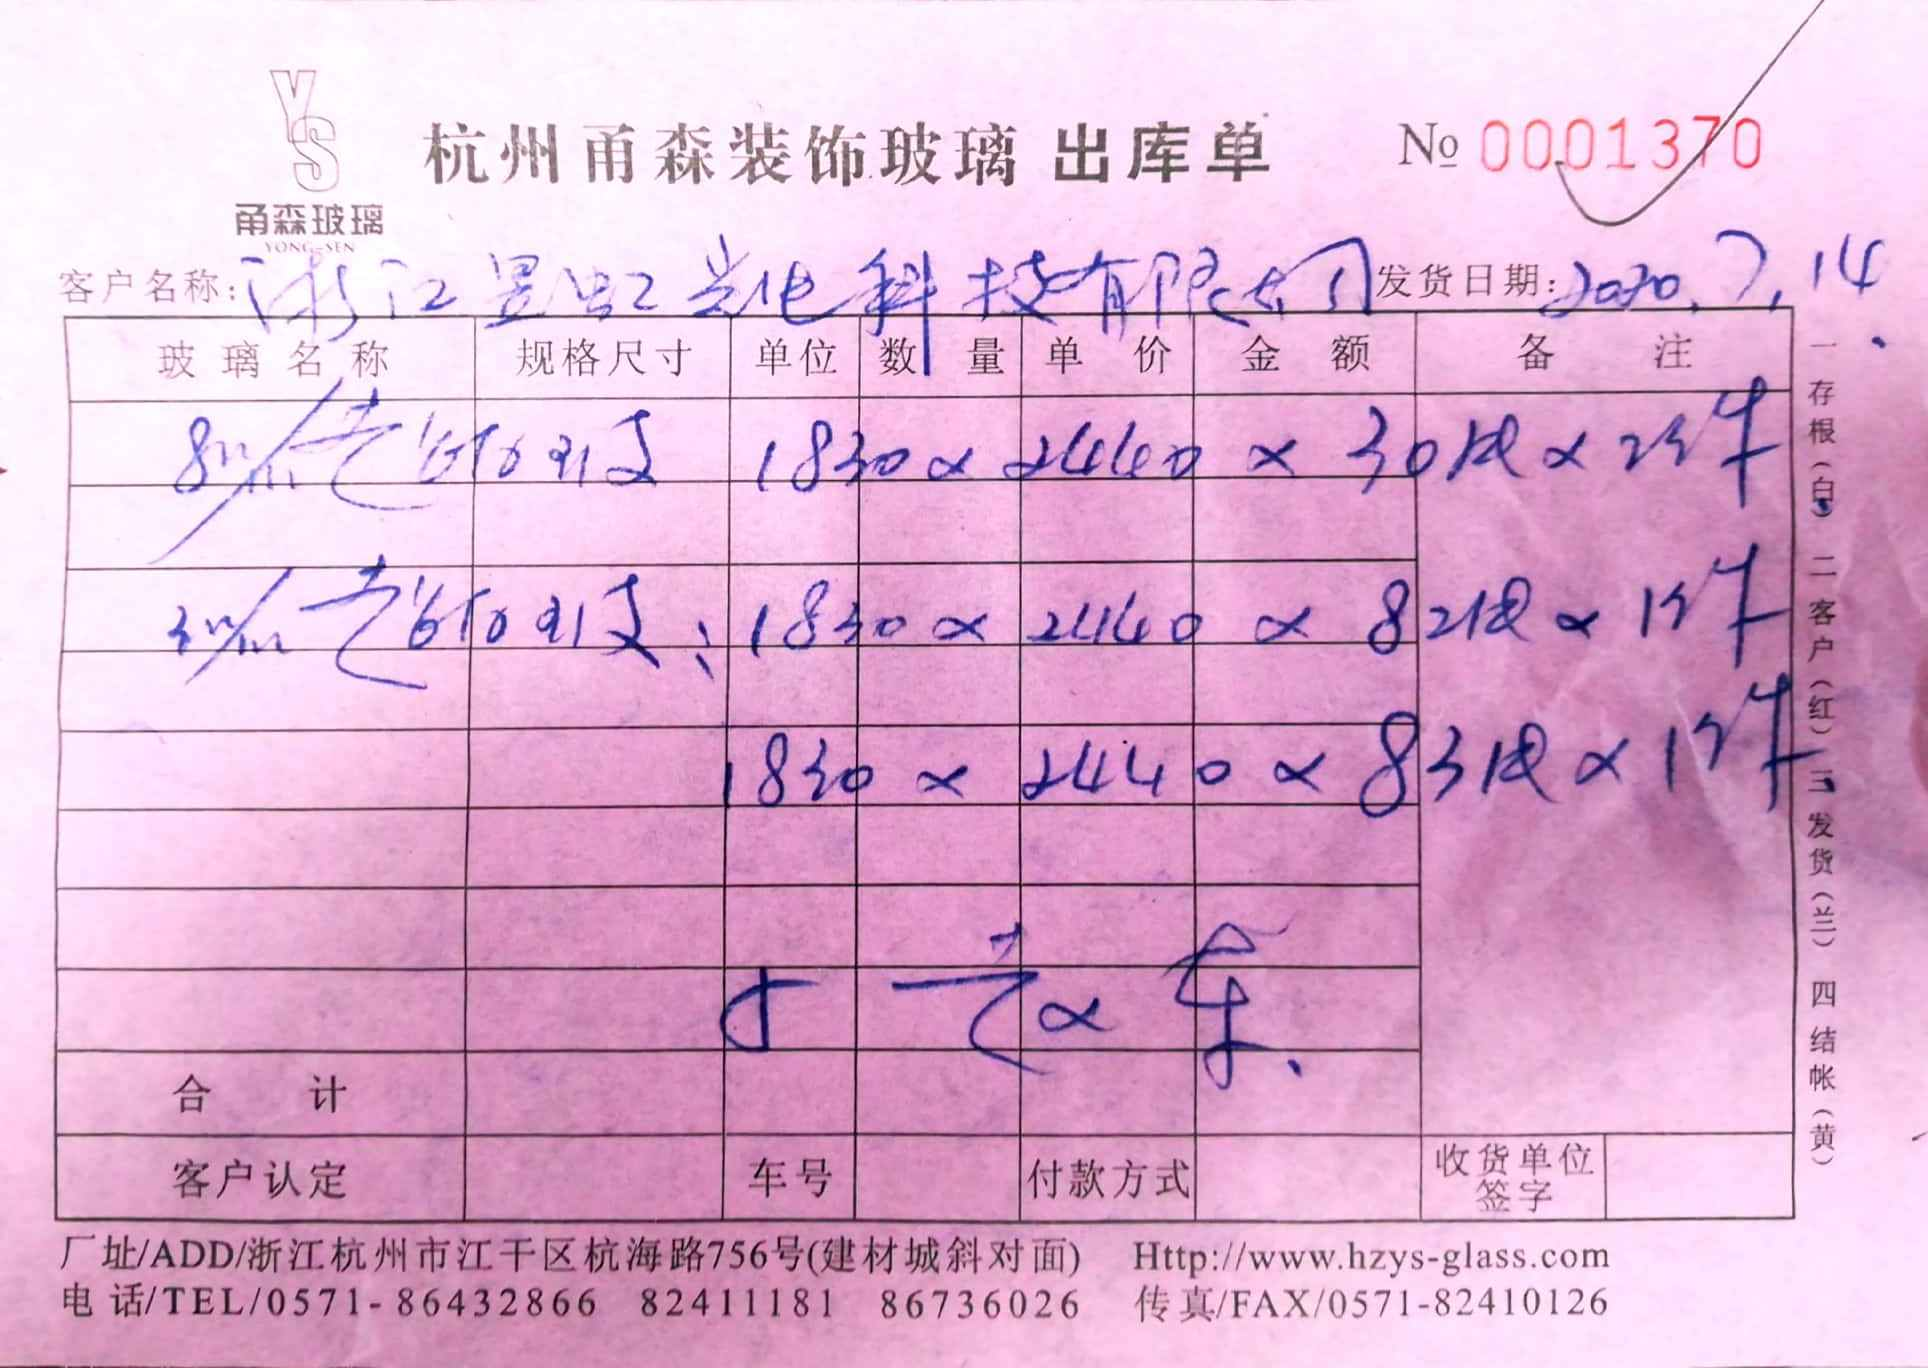 YS
甬森玻璃
YONG-SEN
杭州甬森装饰玻璃 出库单
№ 0001370
客户名称: 浙江昱虹光电科技有限公司 发货日期: 2020.7.14
玻璃名称 规格尺寸 单位 数量 单价 金额 备注
8m/m 1830×2440×30块×2件
3m/m 1830×2440×82块×1件
1830×2440×83块×1件
合计
客户认定 车号 付款方式 收货单位签字
一存根(白) 二客户(红) 三发货(兰) 四结帐(黄)
厂址/ADD/浙江杭州市江干区杭海路756号(建材城斜对面) Http://www.hzys-glass.com
电话/TEL/0571-86432866 82411181 86736026 传真/FAX/0571-82410126